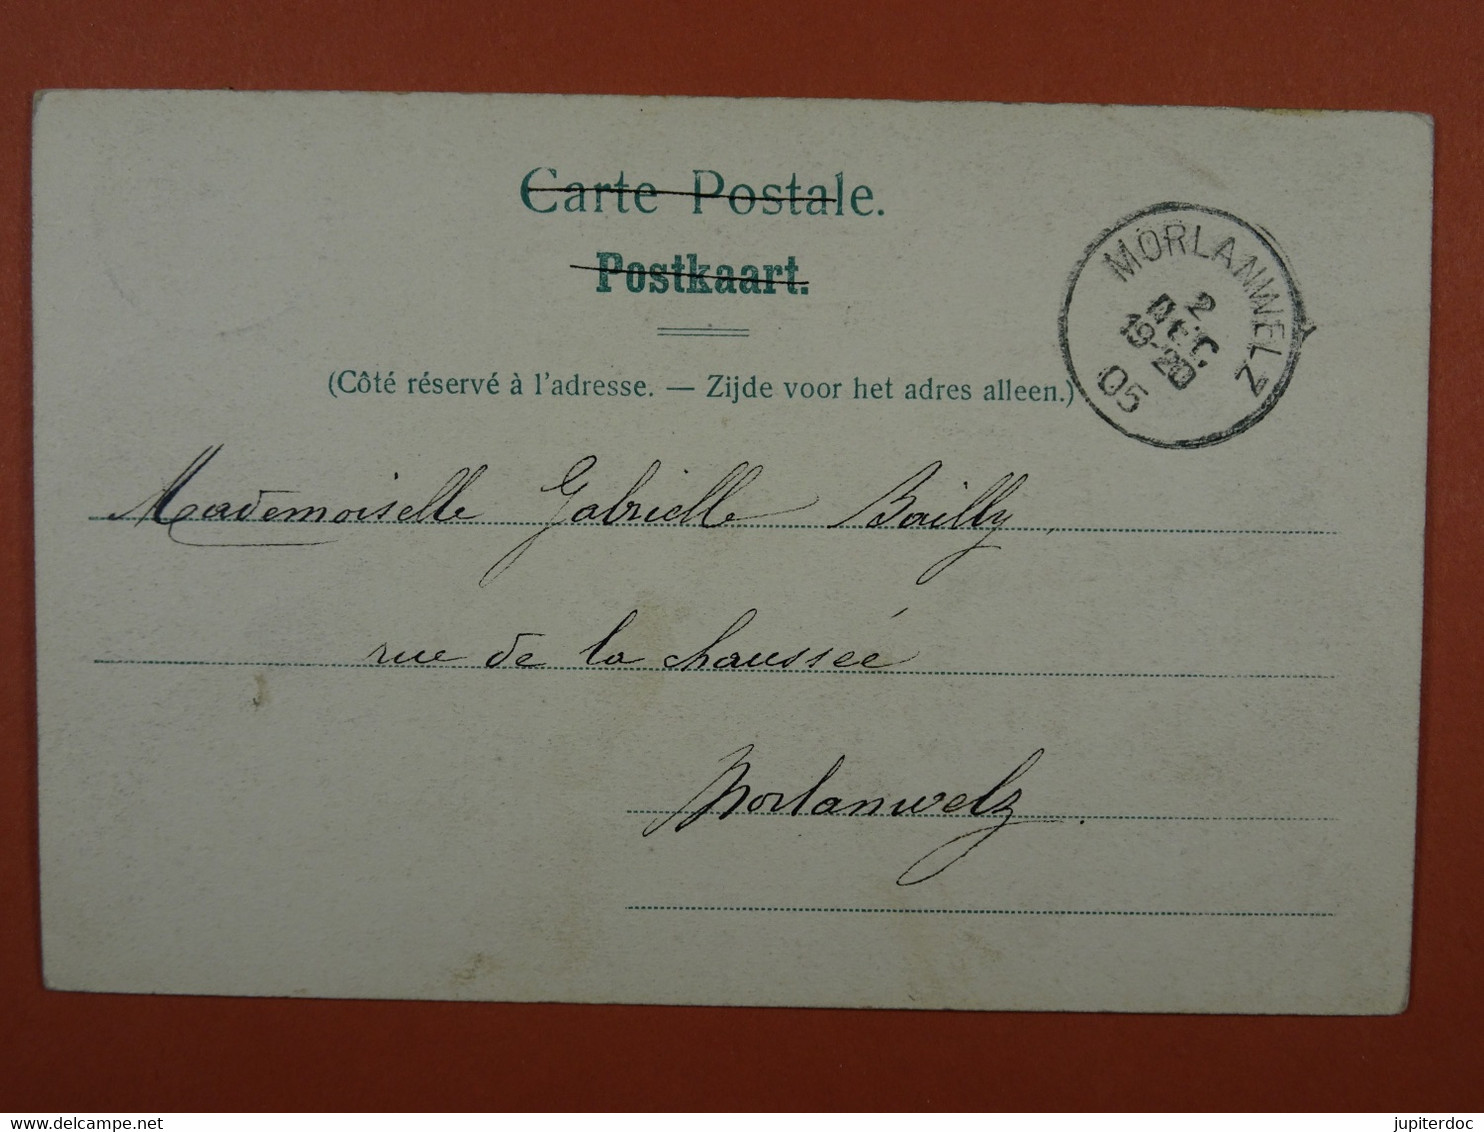 Carte Postale.
Postkaart.
(Côté réservé à l'adresse. — Zijde voor het adres alleen.)
MORLANWELZ
2
DEC.
19-20
05
Mademoiselle Gabrielle Bailly,
rue de la chaussée
Morlanwelz.
delcampe.net
jupiterdoc